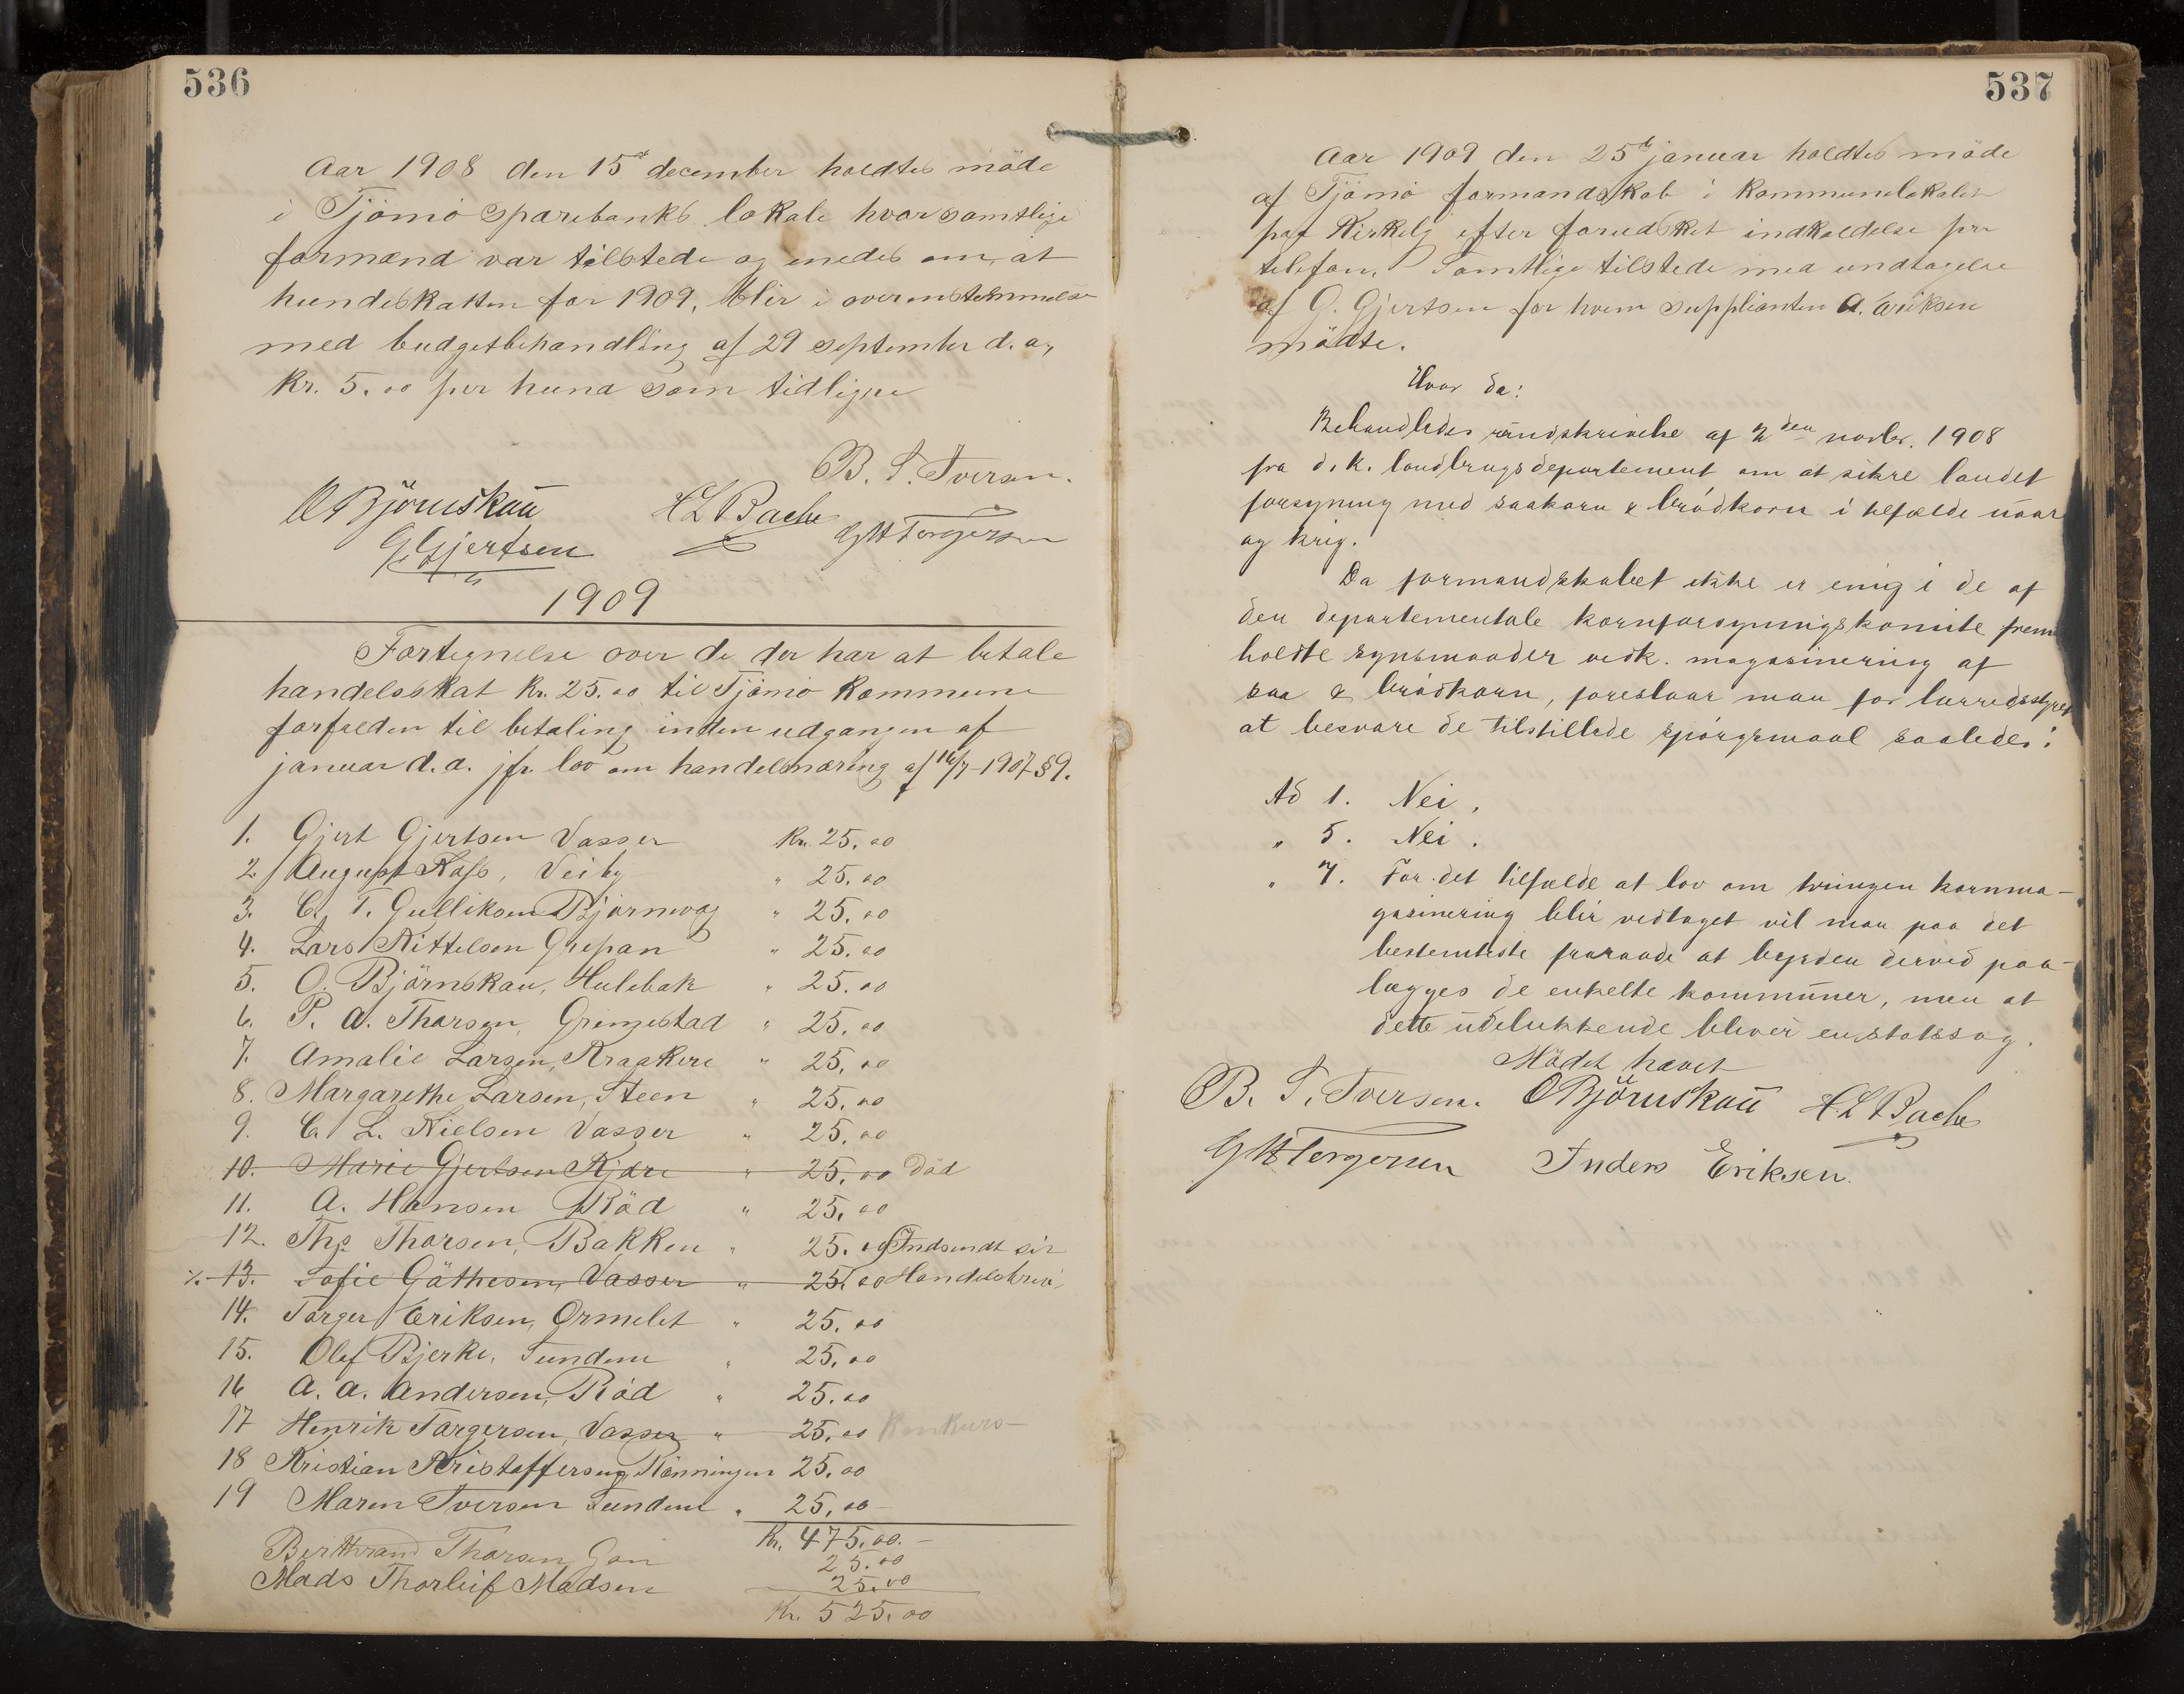 536
Aar 1908 den 15de december holdtes möde
i Tjömö sparebanks lokale hvor samtlige
formænd var tilstede og enedes om, at
hundeskatten for 1909, blir i overenstemmelse
med budgetbehandling af 29 september d. a,
Kr. 5.00 per hund som tidligere
B. S. Iversen.
O Björnskau H L Bache G H Torgersen
G. Gjertsen
1909
Fortegnelse over de der har at betale
handelsskat Kr. 25.00 til Tjömö Kommune
forfalden til betaling inden udgangen af
januar d. a. jfr. lov om handelsnæring af 16/7-1907 §9.
1. Gjert Gjertsen Vasser Kr. 25.00
2 August Kass, Veiby " 25.00
3. C. T. Gulliksen Bjørnevaag " 25.00
4. Lars Kittelsen Grepan " 25.00
5. O. Björnskau, Hulebak " 25.00
6. P. A. Thorsen, Grimestad " 25.00
7. Amalie Larsen, Kraakere " 25.00
8. Margarethe Larsen, Steen " 25.00
9. C. L. Nielsen Vasser " 25.00
10. Marie Gjertsen Kjære " 25.00 Död
11. A. Hansen Röd " 25.00
12. Ths Thorsen, Bakken " 25.00 Indsendt sit
%. 13. Sofie Gåthesen, Vasser " 25.00 Handelsbrev
14. Torger Eriksen, Ormelet " 25.00
15. Olef Bjerke, Sundene " 25.00
16 A. A. Andersen, Röd " 25.00
17 Henrik Torgersen, Vasser " 25.00 Konkurs-
18 Kristian Kristoffersen, Rönningen 25.00
19 Maren Iversen Sundene " 25.00
Kr. 475.00.-
Berthrand Thorsen Gon 25.00
Mads Thorleif Madsen 25.00
Kr. 525.00
537
Aar 1909 den 25de januar holdtes möde
af Tjömö formandskab i Kommunelokalet
paa Kirkelg efter forudsket indkaldelse per
telefon. Samtlige tilstede med undtagelse
af G. Gjertsen for hvem supplianten A. Eriksen
mödte.
Hvor da:
Behandledes rundskrivelse af 2den novbr. 1908
fra d. k. landbrugsdepartement om at sikre landet
forsyning med saakorn & brödkorn i tilfælde uaar
og krig.
Da formandskabet ikke er enig i de af
den departementale kornforsyningskomite frem
holdte synsmaader vedk. magasinering af
saa & brödkorn, foreslaar man for herredsstyret
at besvare de tilstillede spörgsmaal saaledes:
Ad 1. Nei.
" 5. Nei.
" 7. For det tilfælde at lov om tvungen kornma-
gasinering blir vedtaget vil man paa det
bestemteste fraraade at byrden derved paa-
lægges de enkelte kommuner, men at
dette udelukkende bliver en statssag.
Mödet hævet
B. S. Iversen. O Björnskau H L Bache
G H Torgersen Anders Eriksen.